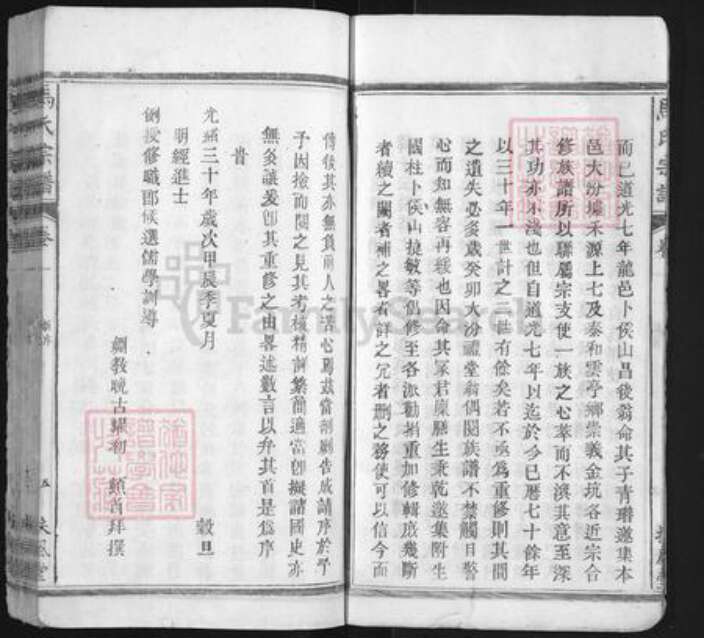 而已道光七年龍邑卜侯山昌後翁命其子青聯遂集本
邑大汾墟禾源上七及泰和雲亭鄉崇義金坑各近宗合
修族譜所以聯屬宗支使一族之心萃而不渙其意至深
其功亦不淺也但自道光七年以迄於今已歷七十餘年
以三十年一世計之二世有餘矣若不亟為重修則其間
之遺失必多歲癸卯大汾禮堂翁偶閱族譜不禁觸目警
心而知無容再緩也因命其冢君廩膳生秉乾遂集附生
國柱卜侯山捷敏等倡修至各派勸捐重加修輯庶幾斷
者續之闕者補之畧者詳之冗者刪之務使可以信今而
傳後其亦無負前人之苦心焉茲當剞劂告成請序於予
予因撿而閱之見其考核精詳繁簡適當卽擬諸國史亦
無多讓爰卽其重修之由畧述數言以弁其首是為序
旹
光緒三十年歲次甲辰季夏月 穀旦
明經進士
例授修職郎候選儒學訓導
劂教晚古 頓首拜撰
馬氏宗譜
卷
五
扶風堂